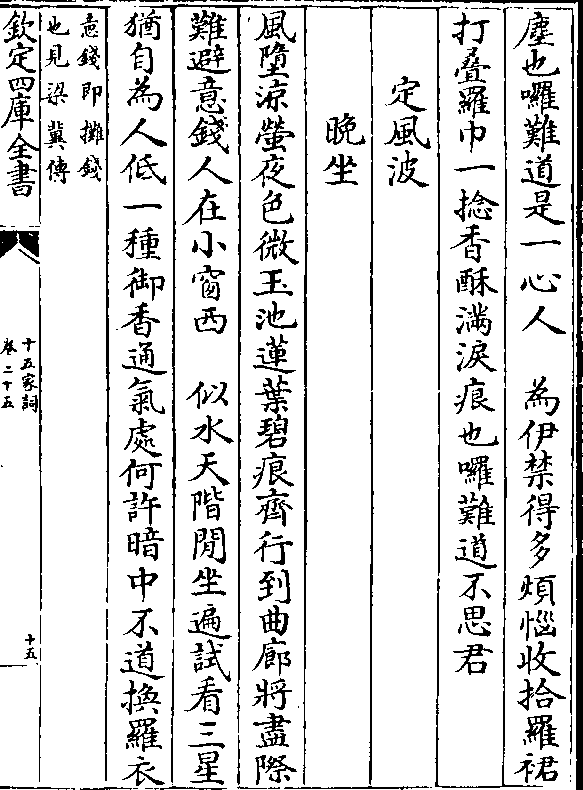 塵也囉難道是一心人　為伊禁得多煩惱收拾羅裙
打疊羅巾一捻香酥滿淚痕也囉難道不思君
定風波
晚坐
風墮涼螢夜色微玉池蓮葉碧痕齊行到曲廊將盡際
難避意錢人在小窗西　似水天階閒坐遍試看三星
猶自為人低一種御香通氣處何許暗中不道換羅衣
意錢即攤錢
也見梁冀傳
欽定四庫全書
十五家詞
卷二十五
十五